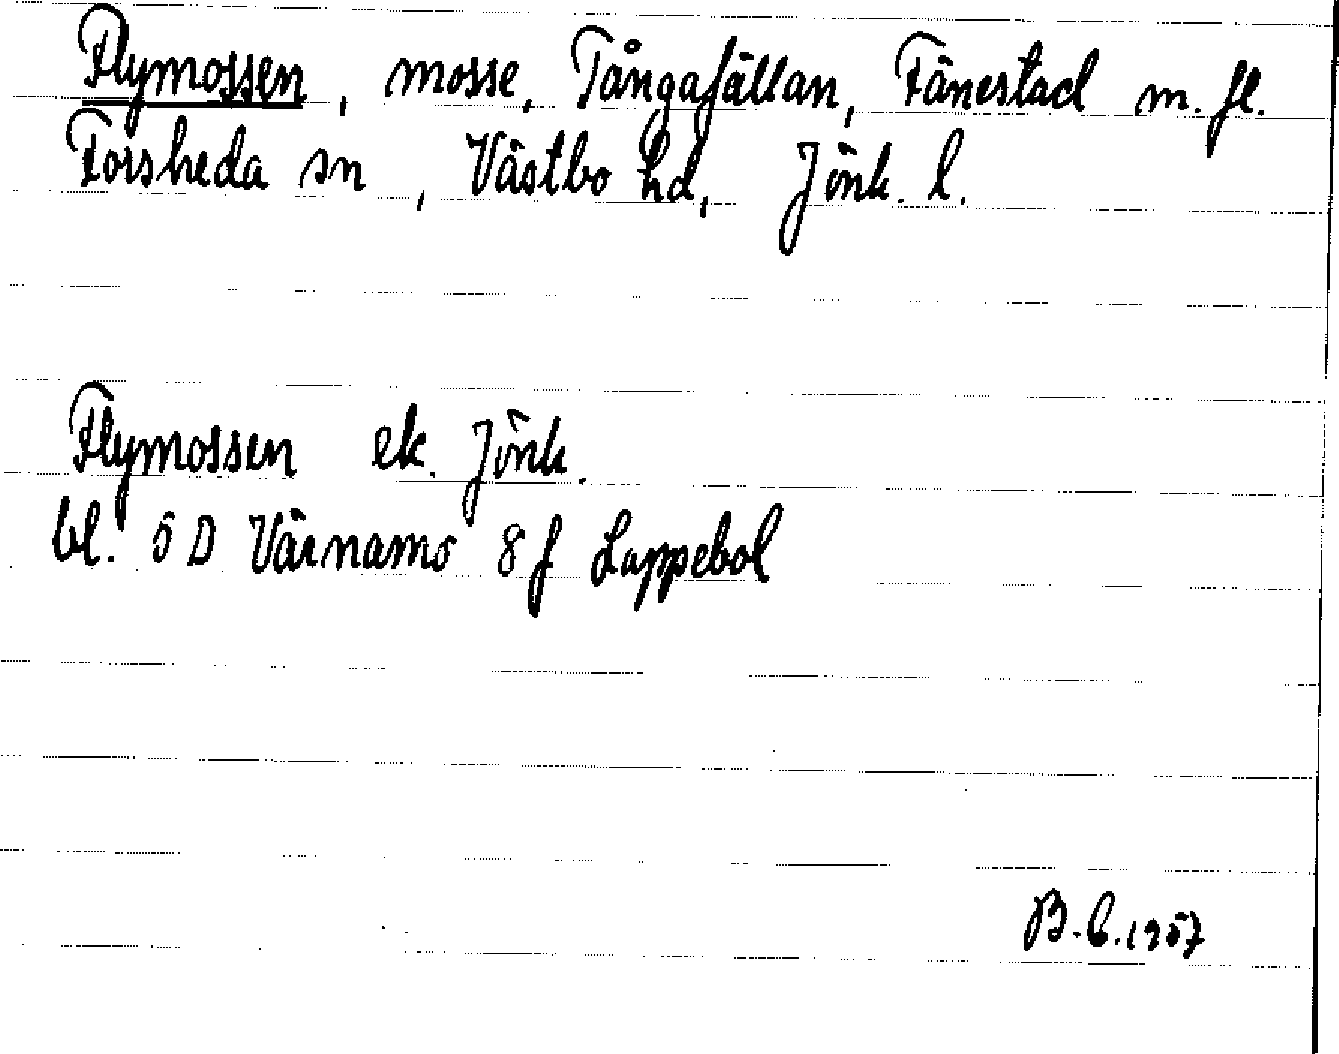 Flymossen, mosse, Tångafällan, Fänestad m. fl.
Forsheda sn, Västbo hd, Jönk. l.
Flymossen ek. Jönk.
bl. 5 D Värnamo 8 f Lappebol
B.C.1957